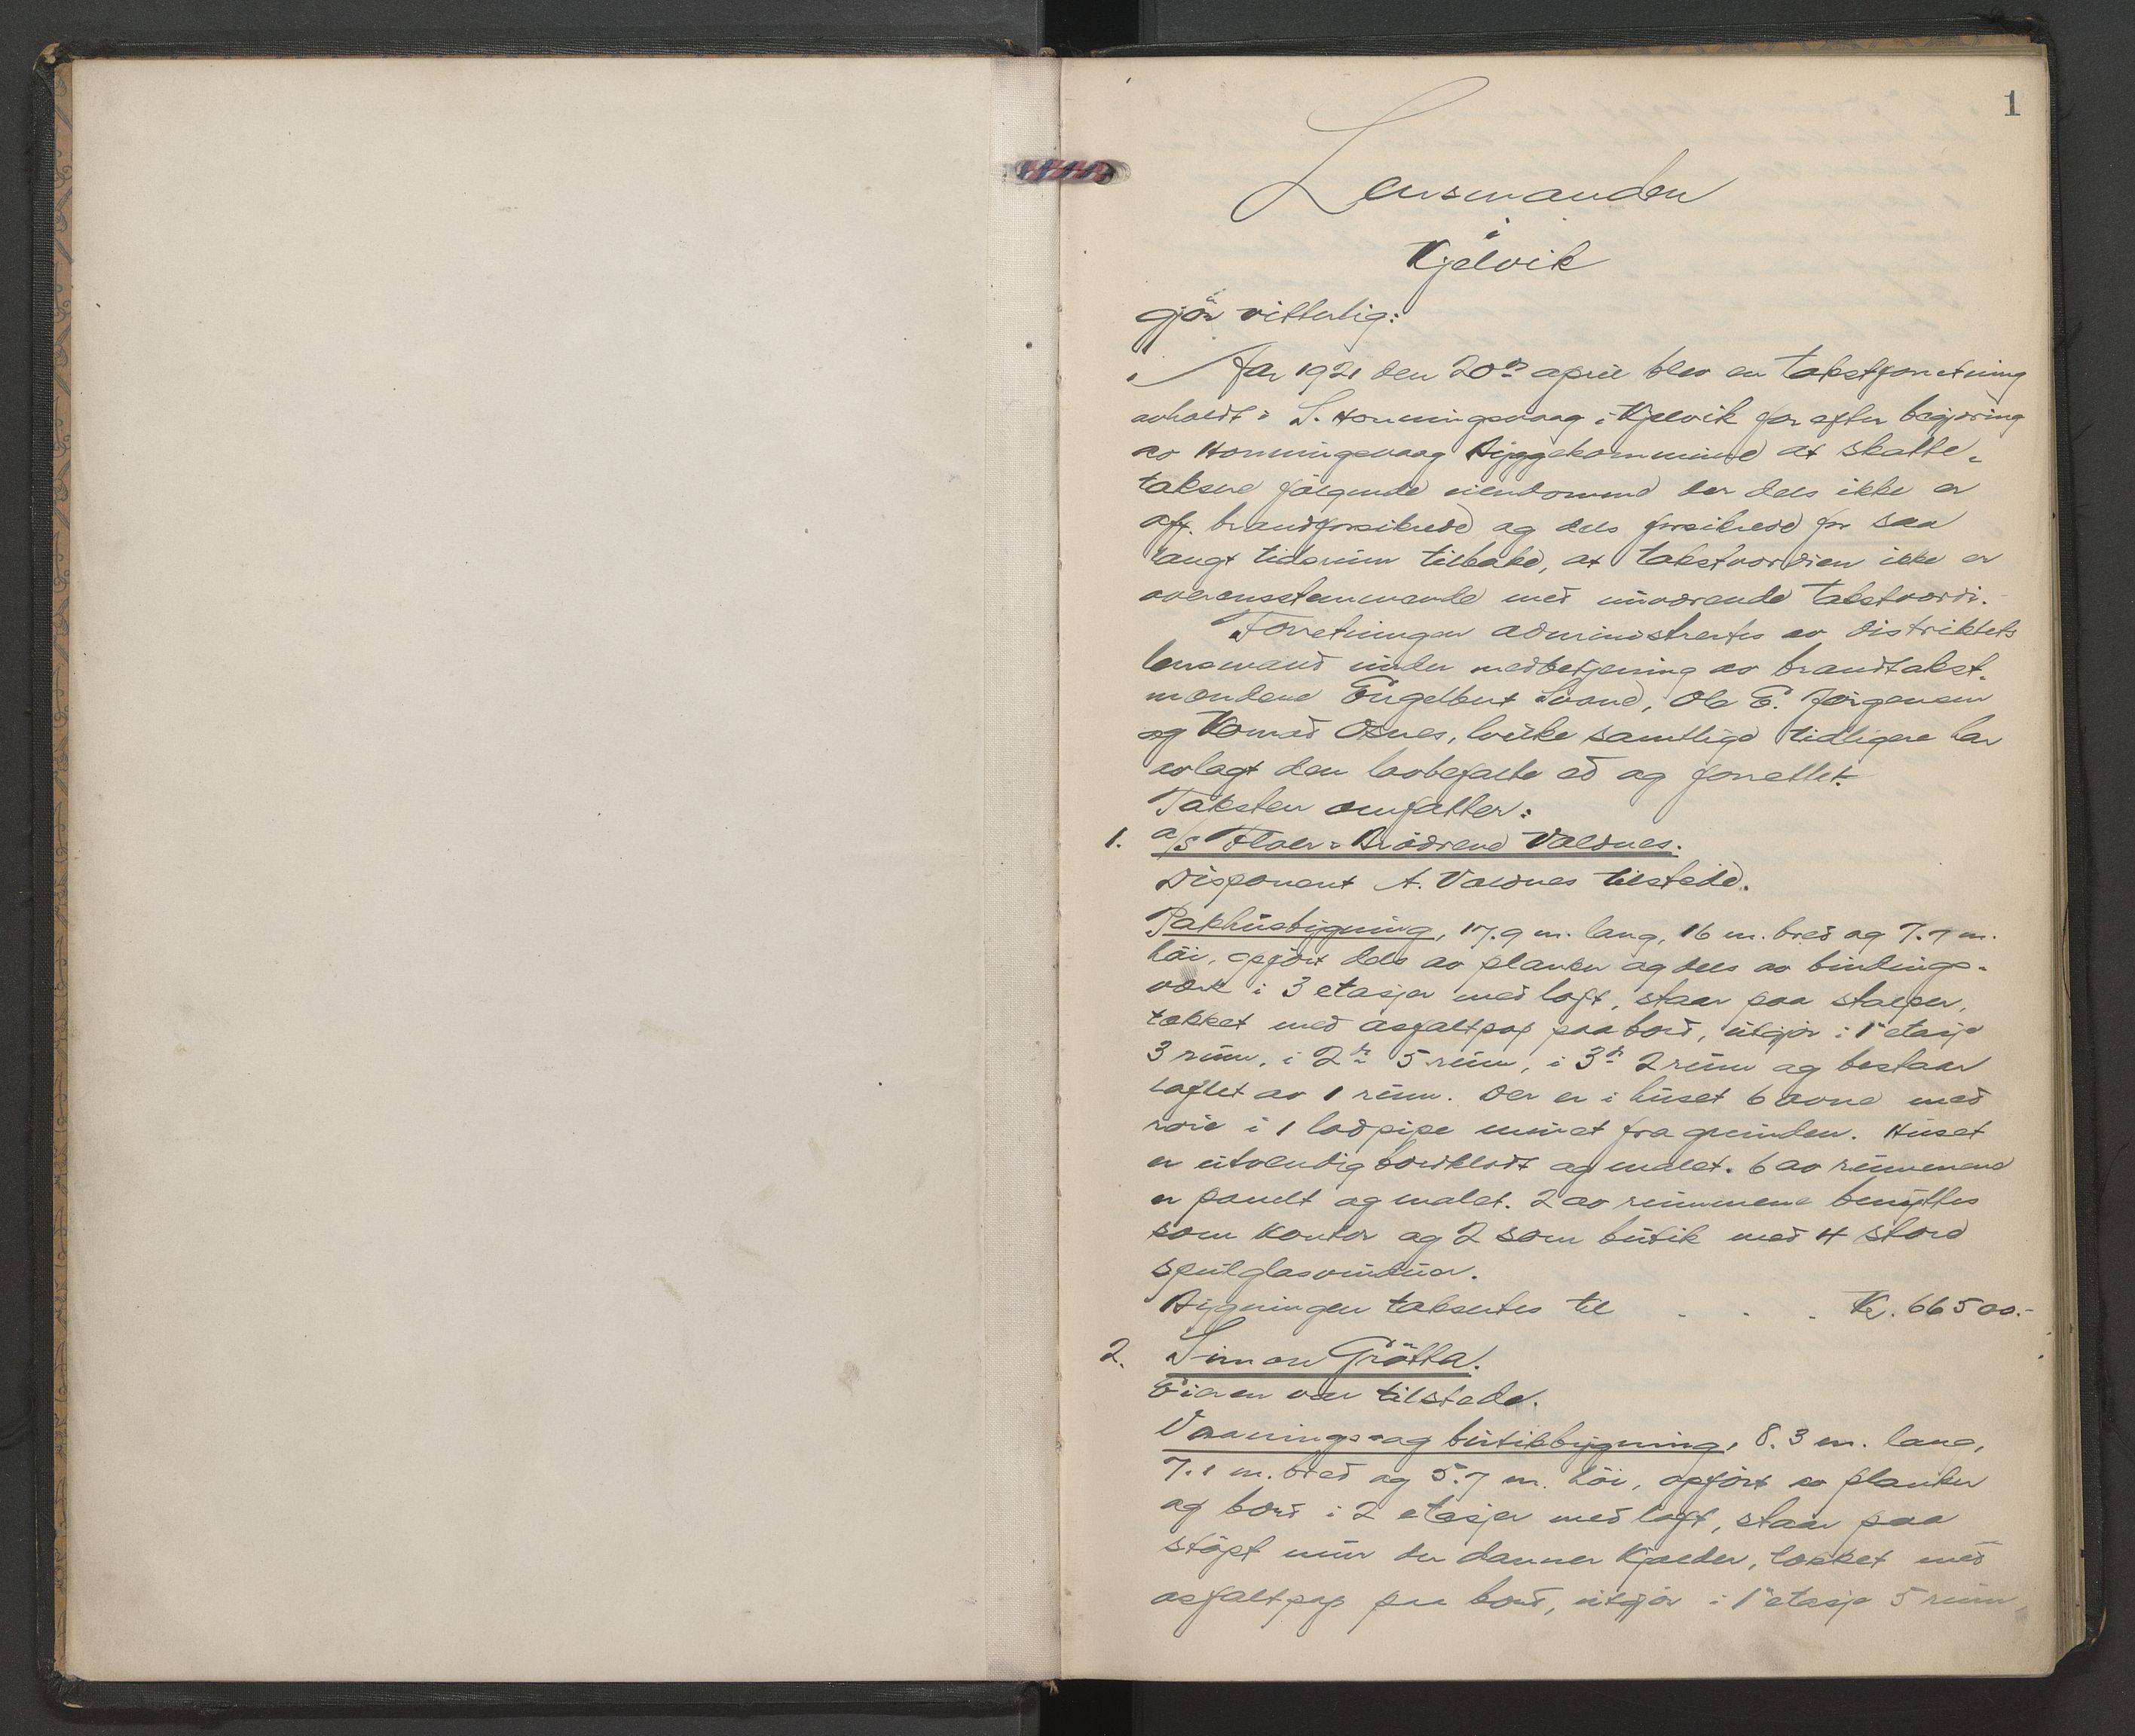 1
Lensmanden
i
Kjelvik
gjör vitterlig:
Aar 1921 den 20de april blev en takstforretning
avholdt i S. Honningsvaag i Kjelvik for efter begjæring
av Honningsvaag Byggekommune at skatte-
taksere følgende eiendomme der dels ikke er
off. brandforsikrede og dels forsikrede for saa
langt tidsrum tilbake, at takstværdien ikke er
overensstemmende med nuværende takstværdi.
Forretningen administrertes av distriktets
lensmand under medbetjening av brandtakst-
mændene Engelbert Svane, Ole E. Jørgensen
og Konrad Osnes, hvilke samtlige tidligere har
avlagt den lovbefalte ed og forrettet.
Taksten omfatter:
1. a/s Floer - Brødrene Valdnes.
Disponent A. Valdnes tilstede.
Pakhusbygning, 17.9 m. lang, 16 m. bred og 7.7 m.
höi, opført dels av planker og dels av bindings-
værk i 3 etasjer med loft, staar paa stolper,
tækket med asfaltpap paa bord, utgjør i 1ste etasje
3 rum, i 2den 5 rum, i 3die 2 rum og bestaar
loftet av 1 rum. Der er i huset 6 ovne med
röir i 1 lodpipe muret fra grunden. Huset
er utvendig bordklædt og malet. 6 av rummene
er panelt og malet. 2 av rummene benyttes
som kontor og 2 som butik med 4 store
speilglasvinduer.
Bygningen taksertes til . . . Kr. 66500.-
2. Simon Grötta.
Eieren var tilstede.
Vaanings- og butikbygning, 8.3 m. lang,
7.1 m. bred og 5.7 m. höi, opfört av planker
og bord i 2 etasjer med loft, staar paa
stöpt mur der danner kjælder, tækket med
asfaltpap paa bord, utgjør i 1ste etasje 5 rum,